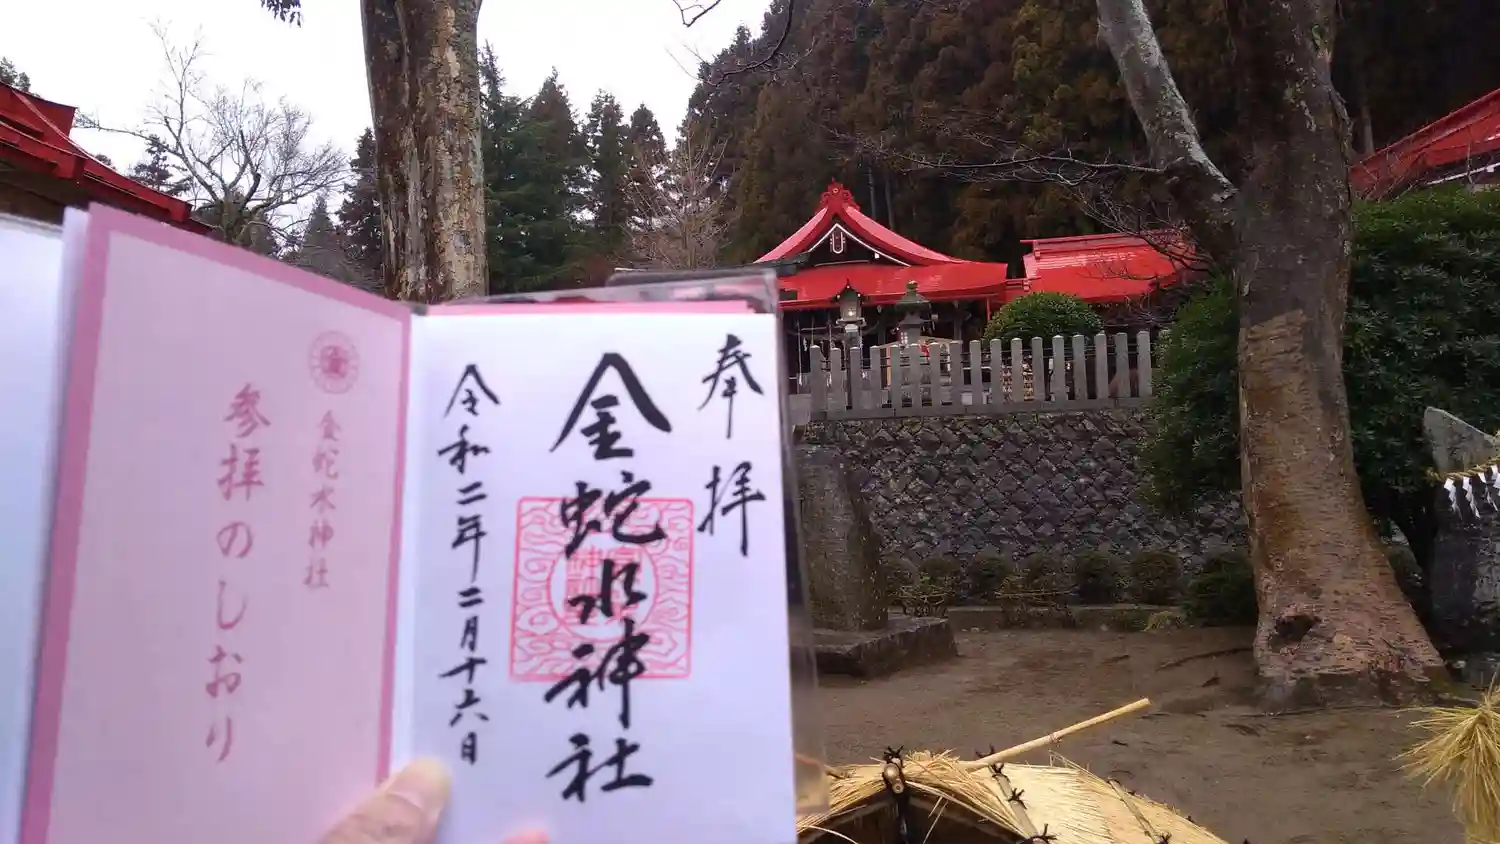 奉拝
金蛇水神社
令和二年二月十六日
金蛇水神社
参拝のしおり